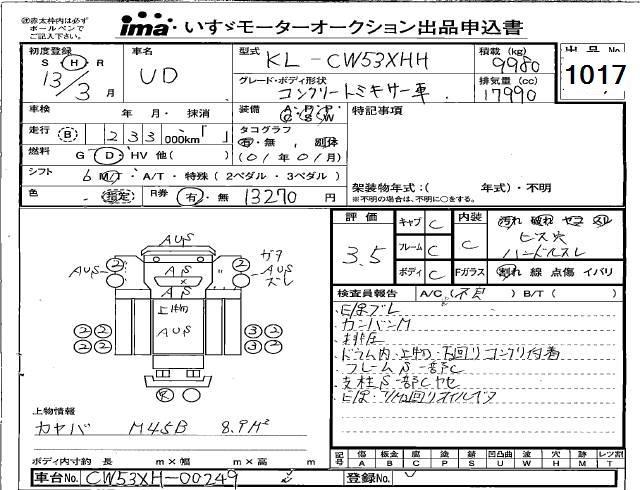 ㊟赤太枠内は必ず
ボールペンで
ご記入下さい。
ima いすゞモーターオークション出品申込書
初度登録 S H R 13年 3月
車名 UD
型式 KL-CW53XHH
積載 (kg) 9980
出品No. 1017
グレード・ボディ形状 コンクリートミキサー車
排気量 (cc) 17990
車検 年 月・ 抹消
装備 A・P・P C S W
特記事項
走行 B 233 000km「 」
タコグラフ 有・無
(01年01月)
燃料 G D・HV 他( )
シフト 6 M/T・A/T・特殊(2ペダル・3ペダル)
色 指定 R券 有・無 13270 円
架装物年式:( 年式)・不明
※不明の場合は、不明に○をする。
評価 3.5
キャブ C
フレーム C
ボディ C
内装 C
汚れ 破れ ヤニ スレ
ビス穴
ハンドルスレ
Fガラス 割れ 線 点傷 イバリ
検査員報告 A/C( ) B/T( )
カンバンM
ドラム内・上物・下回りコンクリ付着
フレームS一部C
AUS
AUS
AS
AS
ガラ
AUS
ズレ
上物
AUS
2 2
2 2
2 2
3 2
3 2
上物情報
カヤバ M45B 8.9M²
ボディ内寸約 長 m×幅 m×高 m
記号 傷 A 板金 B 腐 C 塗 P 錆 S 凹凸曲 U 波 W 穴 H 跡 M レツ割 T
車台No. CW53XH-00249
登録No.